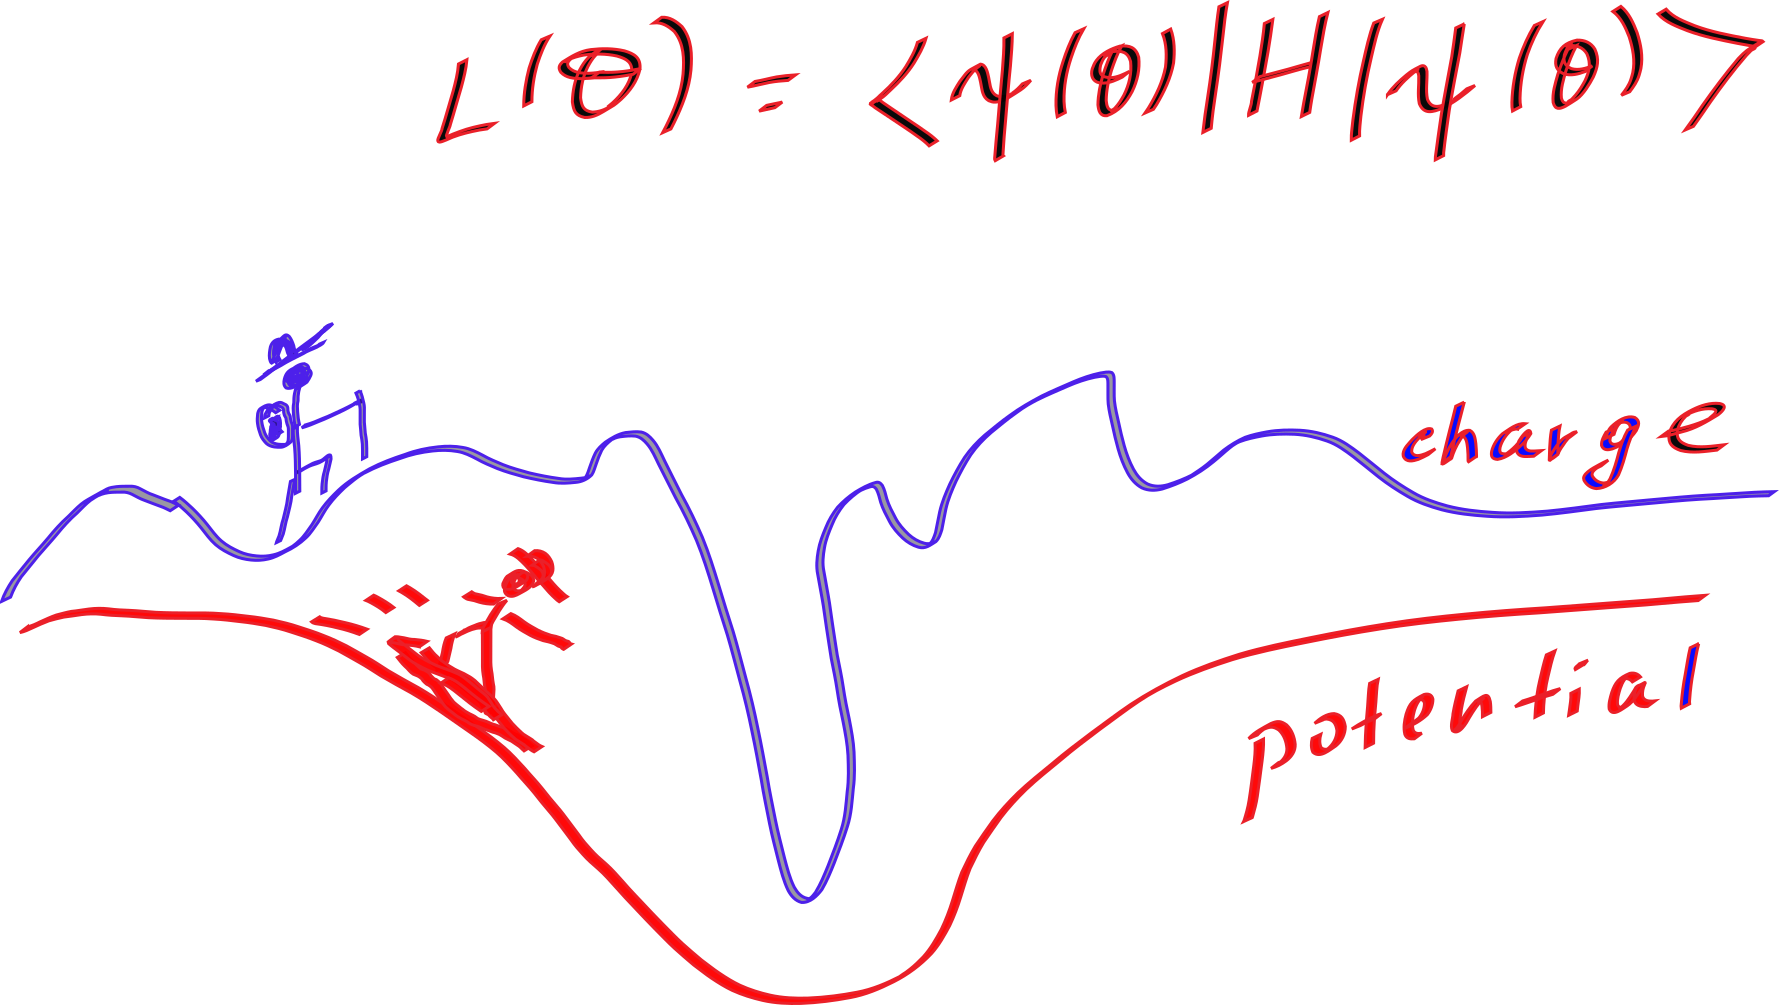 L(θ) = <ψ(θ)|H|ψ(θ)>
charge
potential